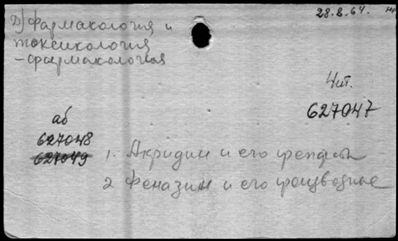 28.8.64.
Д) фармакология и
токсикология
– фармакология
Чит.
627047
аб
627048
627049
1. Акридин и его
2 Феназин и его производные